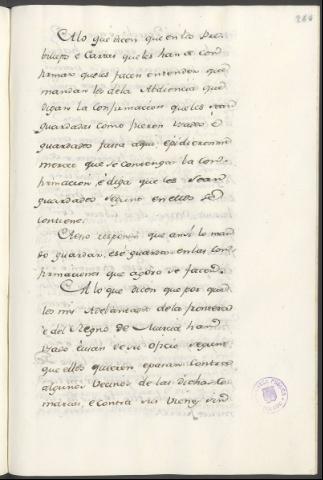 284
A lo que dicen que en los Pre-
billejos e Cartas que les han a con-
firmar que les facen entender que
mandan los de la Abdiencia que
digan la confirmacion que les sean
guardadas como fueron usados é
guardados fasta aqui, e pidieronme
merced que se contenga la con-
firmacion, é diga que les sean
guardados segund en ellos se
contiene.
A esto respondo que ansi lo man-
do guardar, e se guarda en las con-
firmaciones que agora se facen.
A lo que dicen que por quan
los mis Adelantados de la frontera
é del Regno de Murcia han
usado é usan de su oficio segunt
que ellos quieren e pasan contra
algunos vecinos de las dichas Co-
marcas, e contra sus vienes sin